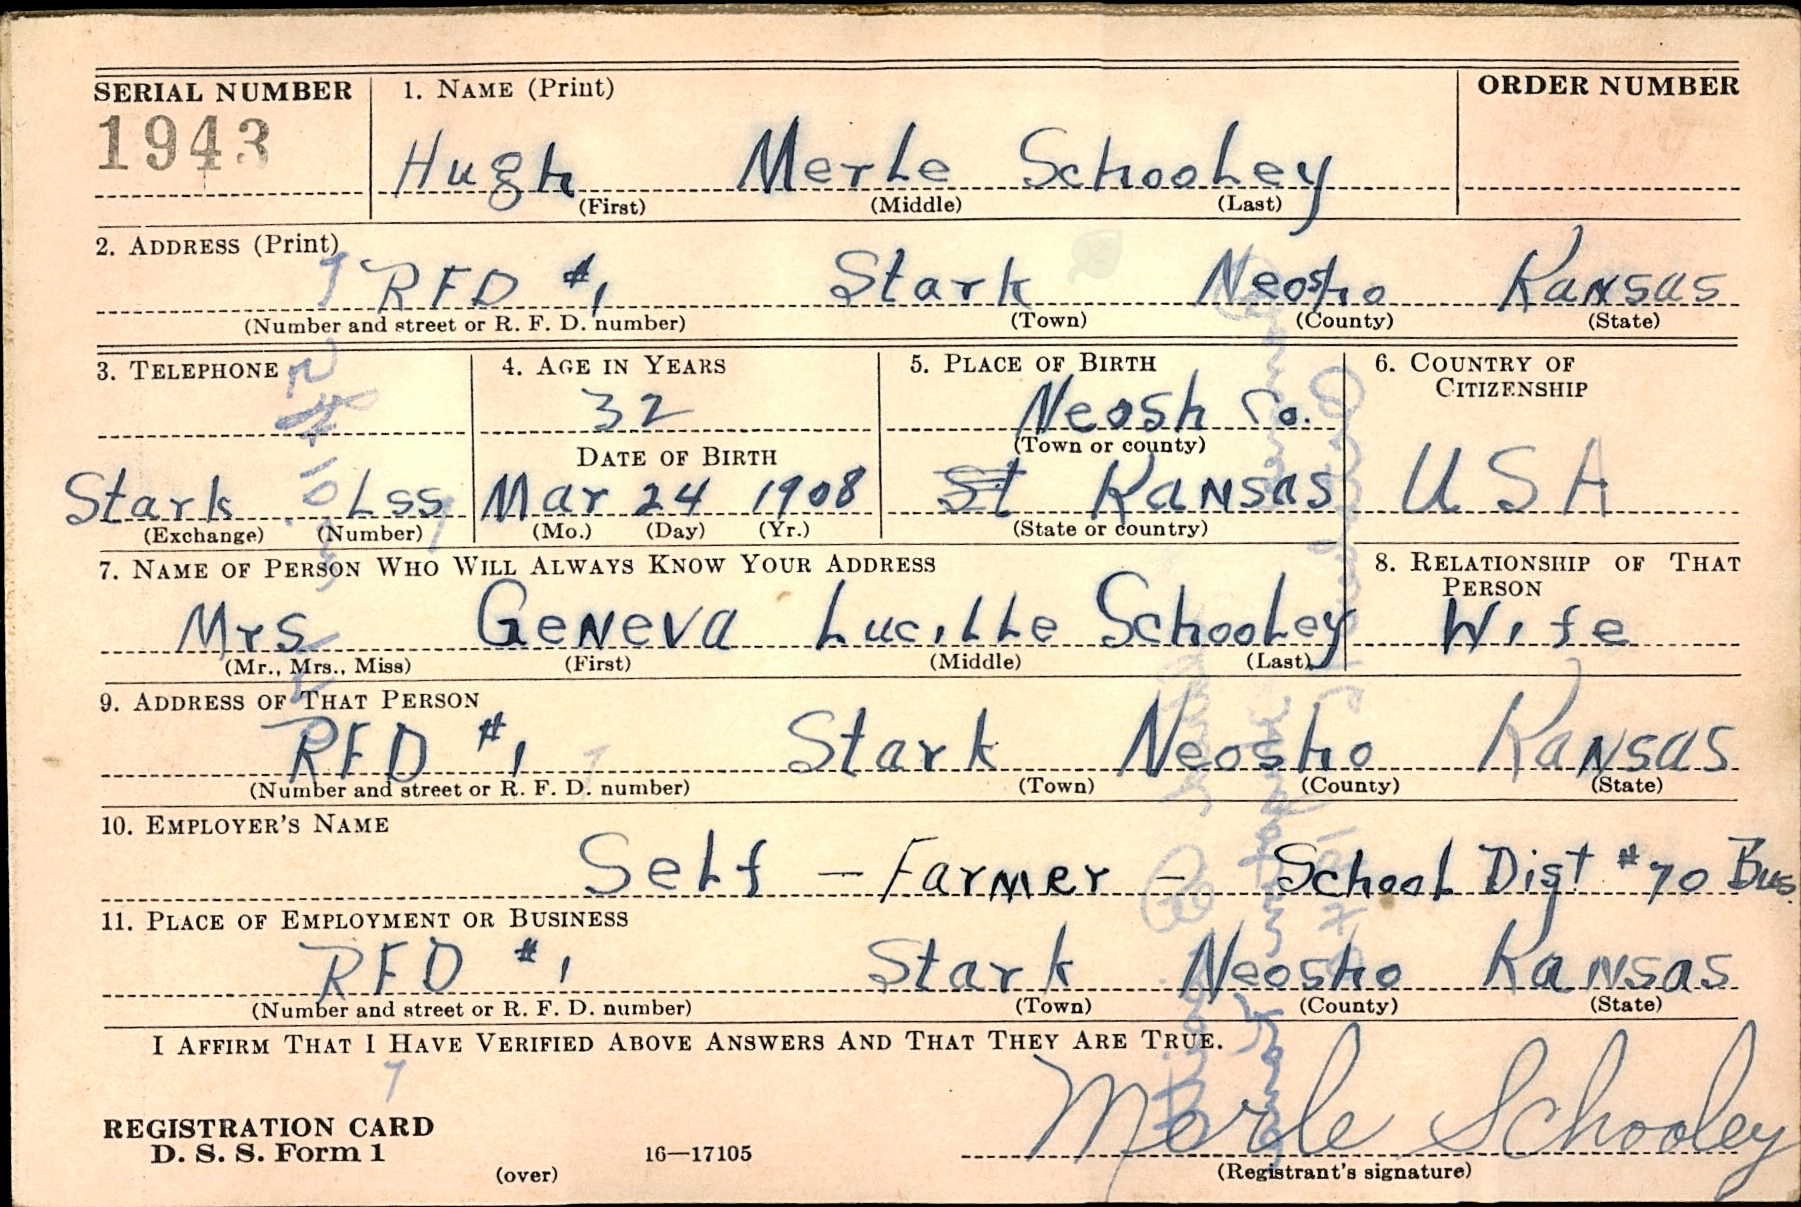 SERIAL NUMBER 1. NAME (Print) ORDER NUMBER
1943 Hugh Merle Schooley
(First) (Middle) (Last)
2. ADDRESS (Print)
RFD #1 Stark Neosho Kansas
(Number and street or R. F. D. number) (Town) (County) (State)
3. TELEPHONE 4. AGE IN YEARS 5. PLACE OF BIRTH 6. COUNTRY OF
CITIZENSHIP
32 Neosh Co.
(Town or county)
DATE OF BIRTH
Stark L55 Mar 24 1908 St Kansas USA
(Exchange) (Number) (Mo.) (Day) (Yr.) (State or country)
7. NAME OF PERSON WHO WILL ALWAYS KNOW YOUR ADDRESS 8. RELATIONSHIP OF THAT
PERSON
Mrs Geneva Lucille Schooley Wife
(Mr., Mrs., Miss) (First) (Middle) (Last)
9. ADDRESS OF THAT PERSON
RFD #1 Stark Neosho Kansas
(Number and street or R. F. D. number) (Town) (County) (State)
10. EMPLOYER'S NAME
Self - Farmer - School Dist #70 Bus.
11. PLACE OF EMPLOYMENT OR BUSINESS
RFD #1 Stark Neosho Kansas
(Number and street or R. F. D. number) (Town) (County) (State)
I AFFIRM THAT I HAVE VERIFIED ABOVE ANSWERS AND THAT THEY ARE TRUE.
Merle Schooley
REGISTRATION CARD
D. S. S. Form 1 16—17105
(over) (Registrant's signature)